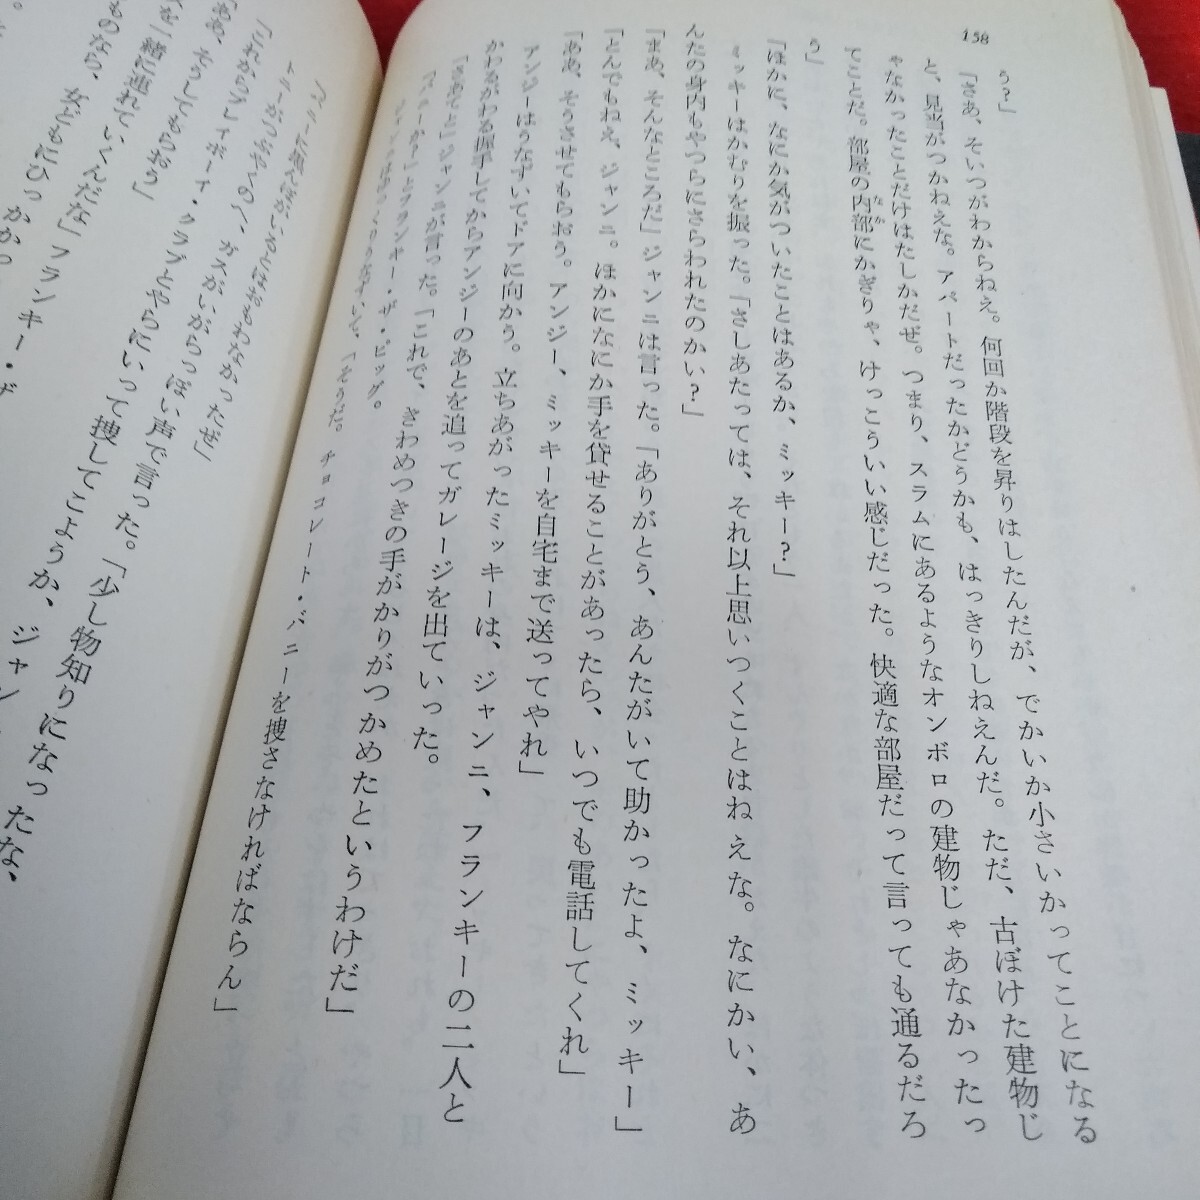 158
う?」
「さあ、そいつがわからねえ。何回か階段を昇りはしたんだが、でかいか小さいかってことになる
と、見当がつかねえな。アパートだったかどうかも、はっきりしねえんだ。ただ、古ぼけた建物じ
ゃなかったことだけはたしかだぜ。つまり、スラムにあるようなオンボロの建物じゃあなかったっ
てことだ。部屋の内部にかぎりゃ、けっこういい感じだった。快適な部屋だって言っても通るだろ
う」
「ほかに、なにか気がついたことはあるか、ミッキー?」
ミッキーはかむりを振った。「さしあたっては、それ以上思いつくことはねえな。なにかい、あ
んたの身内もやつらにさらわれたのかい?」
「まあ、そんなところだ」ジャンニは言った。「ありがとう、あんたがいて助かったよ、ミッキー」
「とんでもねえ、ジャンニ。ほかになにか手を貸せることがあったら、いつでも電話してくれ」
「ああ、そうさせてもらおう。アンジー、ミッキーを自宅まで送ってやれ」
アンジーはうなずいてドアに向かう。立ちあがったミッキーは、ジャンニ、フランキーの二人と
かわるがわる握手してからアンジーのあとを追ってガレージを出ていった。
「さあてと」ジャンニが言った。「これで、きわめつきの手がかりがつかめたというわけだ」
「バニーか?」とフランキー・ザ・ビッグ。
ジャンニはゆっくりうなずいて、「そうだ。チョコレート・バニーを捜さなければならん」
「バニーに黒んぼがいるとはおもわなかったぜ」
トニーがつぶやくのへ、ガスがいがらっぽい声で言った。「少し物知りになったな、
「これからプレイボーイ・クラブとやらにいって捜してこようか、ジャン
「ああ、そうしてもらおう」
を一緒に連れていくんだな」フランキー・ザ
ものなら、女どもにひっかかっ